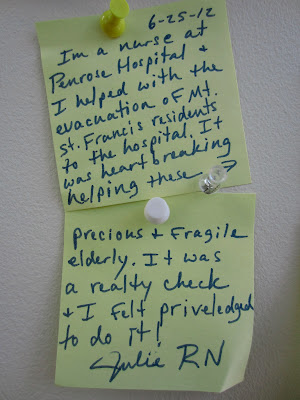 6-25-12
I'm a nurse at
Penrose Hospital &
I helped with the
evacuation of Mt.
St. Francis residents
to the hospital. It
was heartbreaking
helping these →
precious & Fragile
elderly. It was
a realty check
& I felt priveledged
to do it!
Julie RN